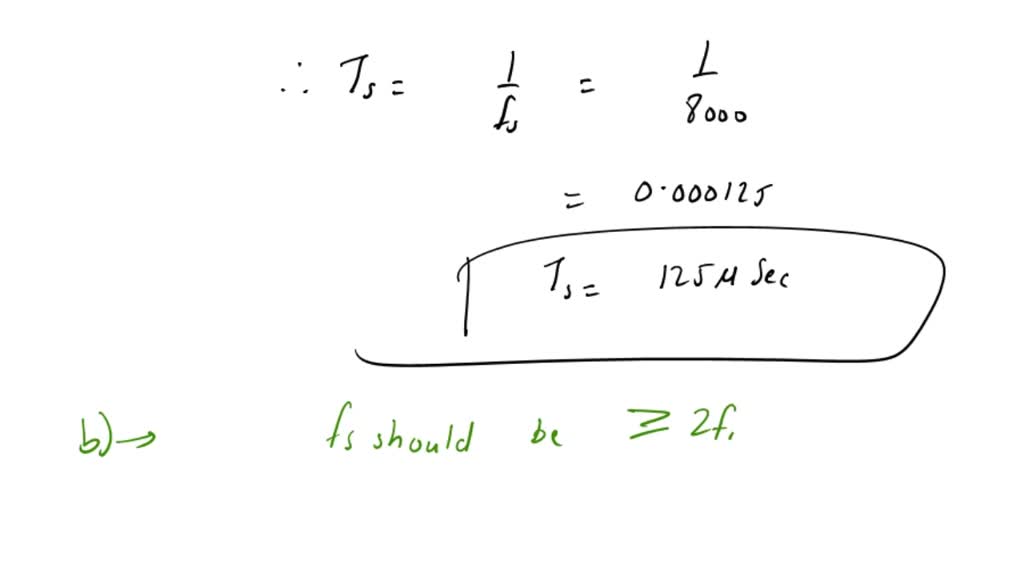 ∴ Ts = 1/fs = 1/8000
= 0.000125
Ts = 125 μ Sec
b) → fs should be ≥ 2f.